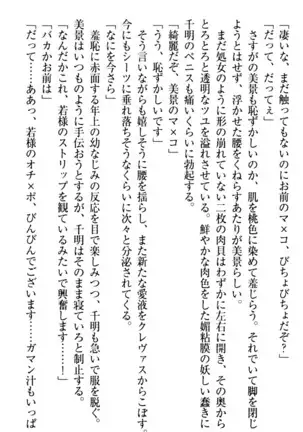 「凄いな、まだなにもしてないのにお前のマ×コ、びちょびちょだぞ？」
「だって、だってぇ」
さすがの美景も恥ずかしいのか、肌を桃色に染めて羞じらう。それでいて脚を閉じ
ようとはせず、浮かせた腰をくねらすあたりが美景らしい。
まだ処女のように形の崩れていない二枚の肉貝はわずかに左右に開き、その奥から
とろとろと透明なツユを溢れさせている。鮮やかな肉色をした媚粘膜の妖しい蠢きに
千明のペニスも痛いくらいに勃起する。
「綺麗だぞ、美景のマ×コ」
「うう、恥ずかしいです」
そう言いながらも嬉しそうに腰を揺らし、また新たな愛液をクレヴァスからこぼす。
今にもシーツに垂れ落ちそうなくらいに次々と分泌されてくる。
「なにを今さら」
羞恥に赤面する年上の幼なじみの反応を目で楽しみつつ、千明も急いで服を脱ぐ。
美景はいつものように手伝おうとするが、千明はそのまま寝ていろと制止する。
「なんだかこれ、若様のストリップを観ているみたいで興奮します……！」
「バカかお前は」
「だって……ああっ、若様のオチ×ポ、びんびんでございます……ガマン汁もいっぱ